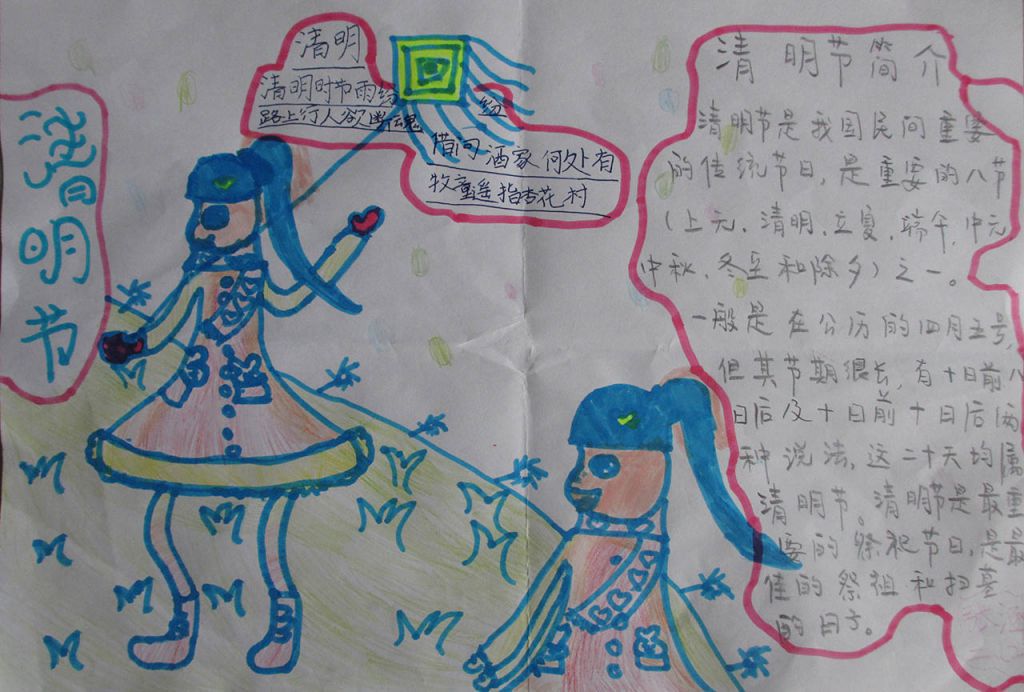 清明节
清明
清明时节雨纷
纷
路上行人欲断魂
借问酒家何处有
牧童遥指杏花村
清明节简介
清明节是我国民间重要
的传统节日,是重要的八节
(上元、清明、立夏、端午、中元
中秋、冬至和除夕)之一。
一般是在公历的四月五号,
但其节期很长,有十日前八
日后及十日前十日后两
种说法,这二十天均属
清明节。清明节是最重
要的祭祀节日,是最
佳的祭祖和扫墓
的日子。